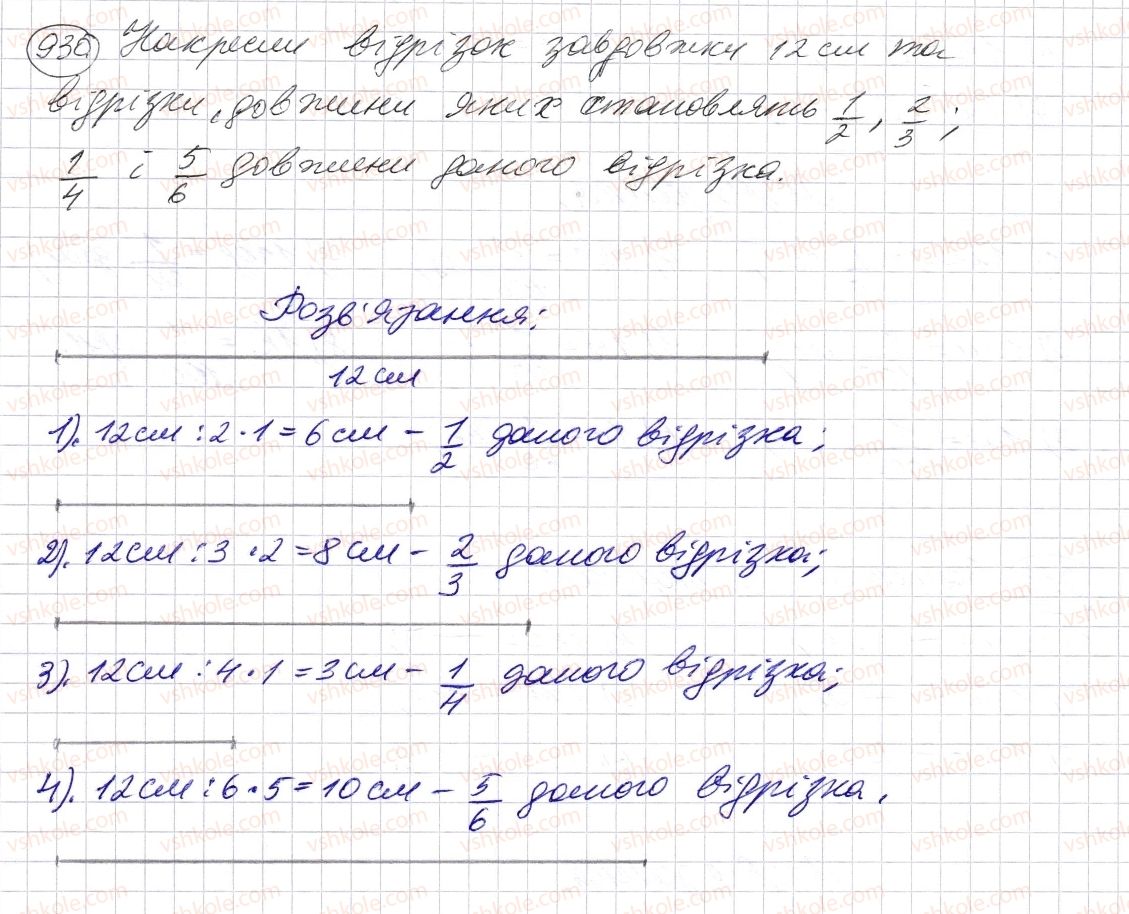 936 Накресли відрізок завдовжки 12 см та
відрізки, довжини яких становлять 1/2, 2/3;
1/4 і 5/6 довжини даного відрізка.
Розв'язання:
12 см
1). 12 см : 2 · 1 = 6 см – 1/2 даного відрізка;
2). 12 см : 3 · 2 = 8 см – 2/3 даного відрізка;
3). 12 см : 4 · 1 = 3 см – 1/4 даного відрізка;
4). 12 см : 6 · 5 = 10 см – 5/6 даного відрізка.
vshkole.com